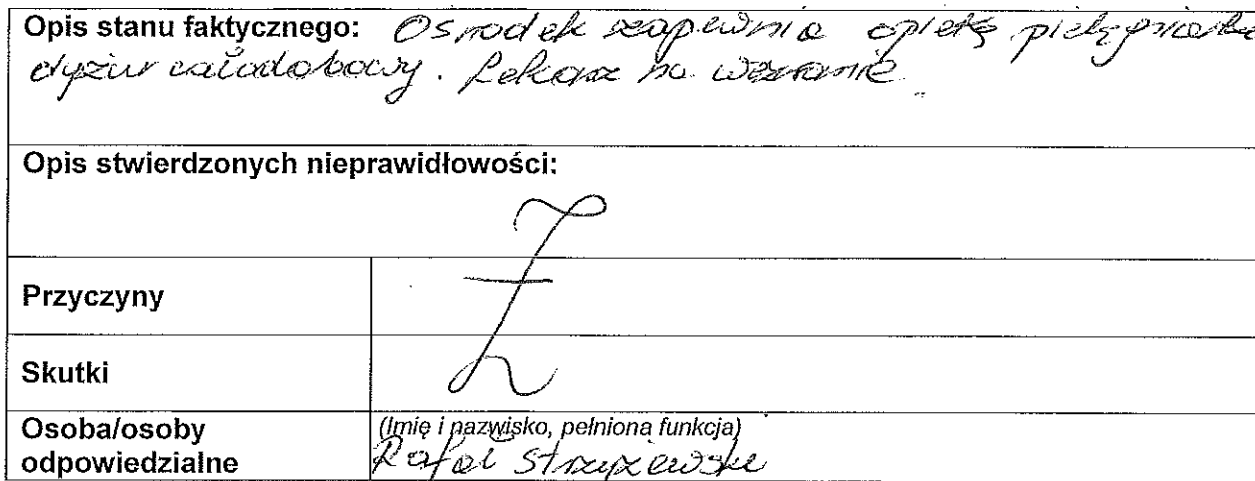 Opis stanu faktycznego: Ośrodek zapewnia opiekę pielęgniarką
dyżur całodobowy. Lekarz na wezwanie.
Opis stwierdzonych nieprawidłowości:
Przyczyny
Skutki
Osoba/osoby odpowiedzialne
(Imię i nazwisko, pełniona funkcja)
Rafał Strzyżewski